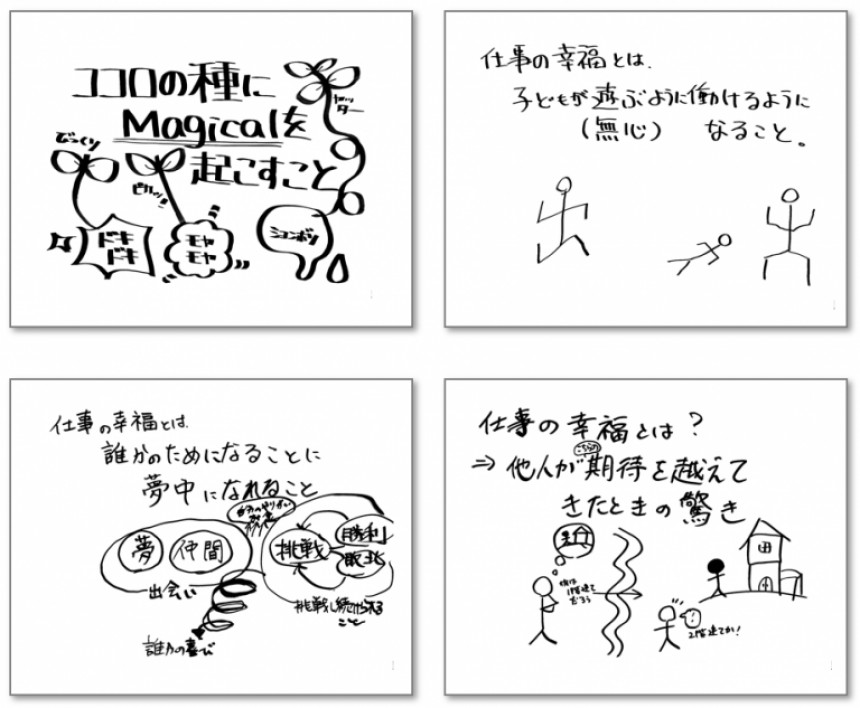 ココロの種に
Magicalを
起こすこと
びっくり
ピカッ!
ドキ
ドキ
モヤ
モヤ
ションボリ
仕事の幸福とは、
子どもが遊ぶように働けるように
(無心) なること。
仕事の幸福とは、
誰かのためになることに
夢中になれること
夢
仲間
出会い
誰かの喜び
挑戦
勝利
敗北
挑戦し続けられる
こと
仕事の幸福とは?
⇒他人が期待を越えて
こちらの
きたときの驚き
彼は
1階建て
だろう
2階建てか!